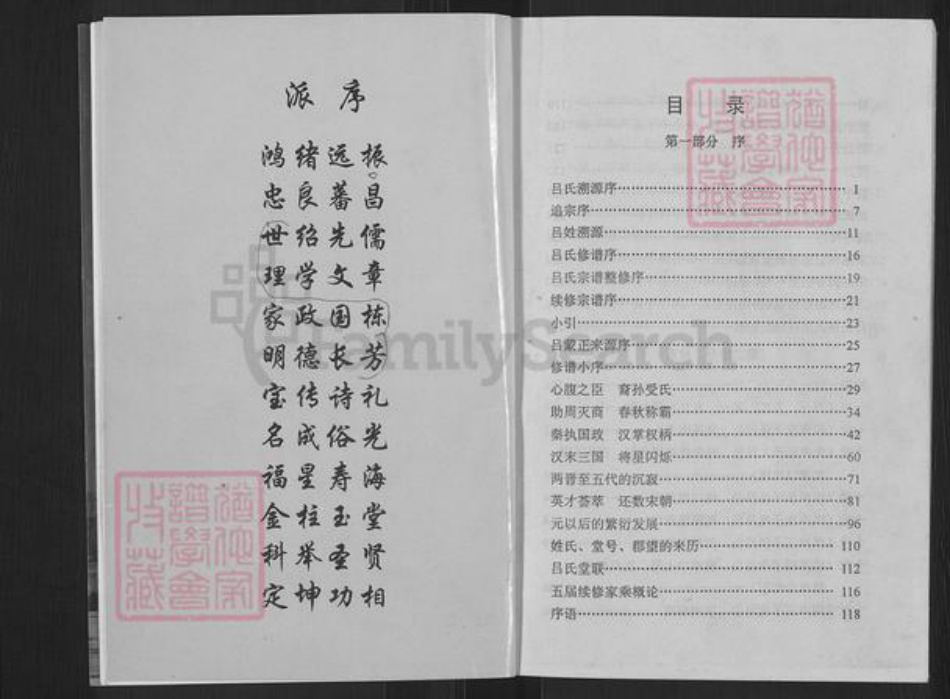 派 序
鸿绪远振
忠良蕃昌
世绍先儒
理学文章
家政国栋
明德长芳
宝传诗礼
名成俗光
福星寿海
金柱玉堂
科举圣贤
定坤功相
猶他家
譜學會
收藏
FamilySearch
目 录
第一部分 序
吕氏溯源序………1
追宗序………7
吕姓溯源………11
吕氏修谱序………16
吕氏宗谱整修序………19
续修宗谱序………21
小引………23
吕蒙正来源序………25
修谱小序………27
心腹之臣 裔孙受氏………29
助周灭商 春秋称霸………34
秦执国政 汉掌权柄………42
汉末三国 将星闪烁………60
两晋至五代的沉寂………71
英才荟萃 还数宋朝………81
元以后的繁衍发展………96
姓氏、堂号、郡望的来历………110
吕氏堂联………112
五届续修家乘概论………116
序语………118
猶他家
譜學會
收藏